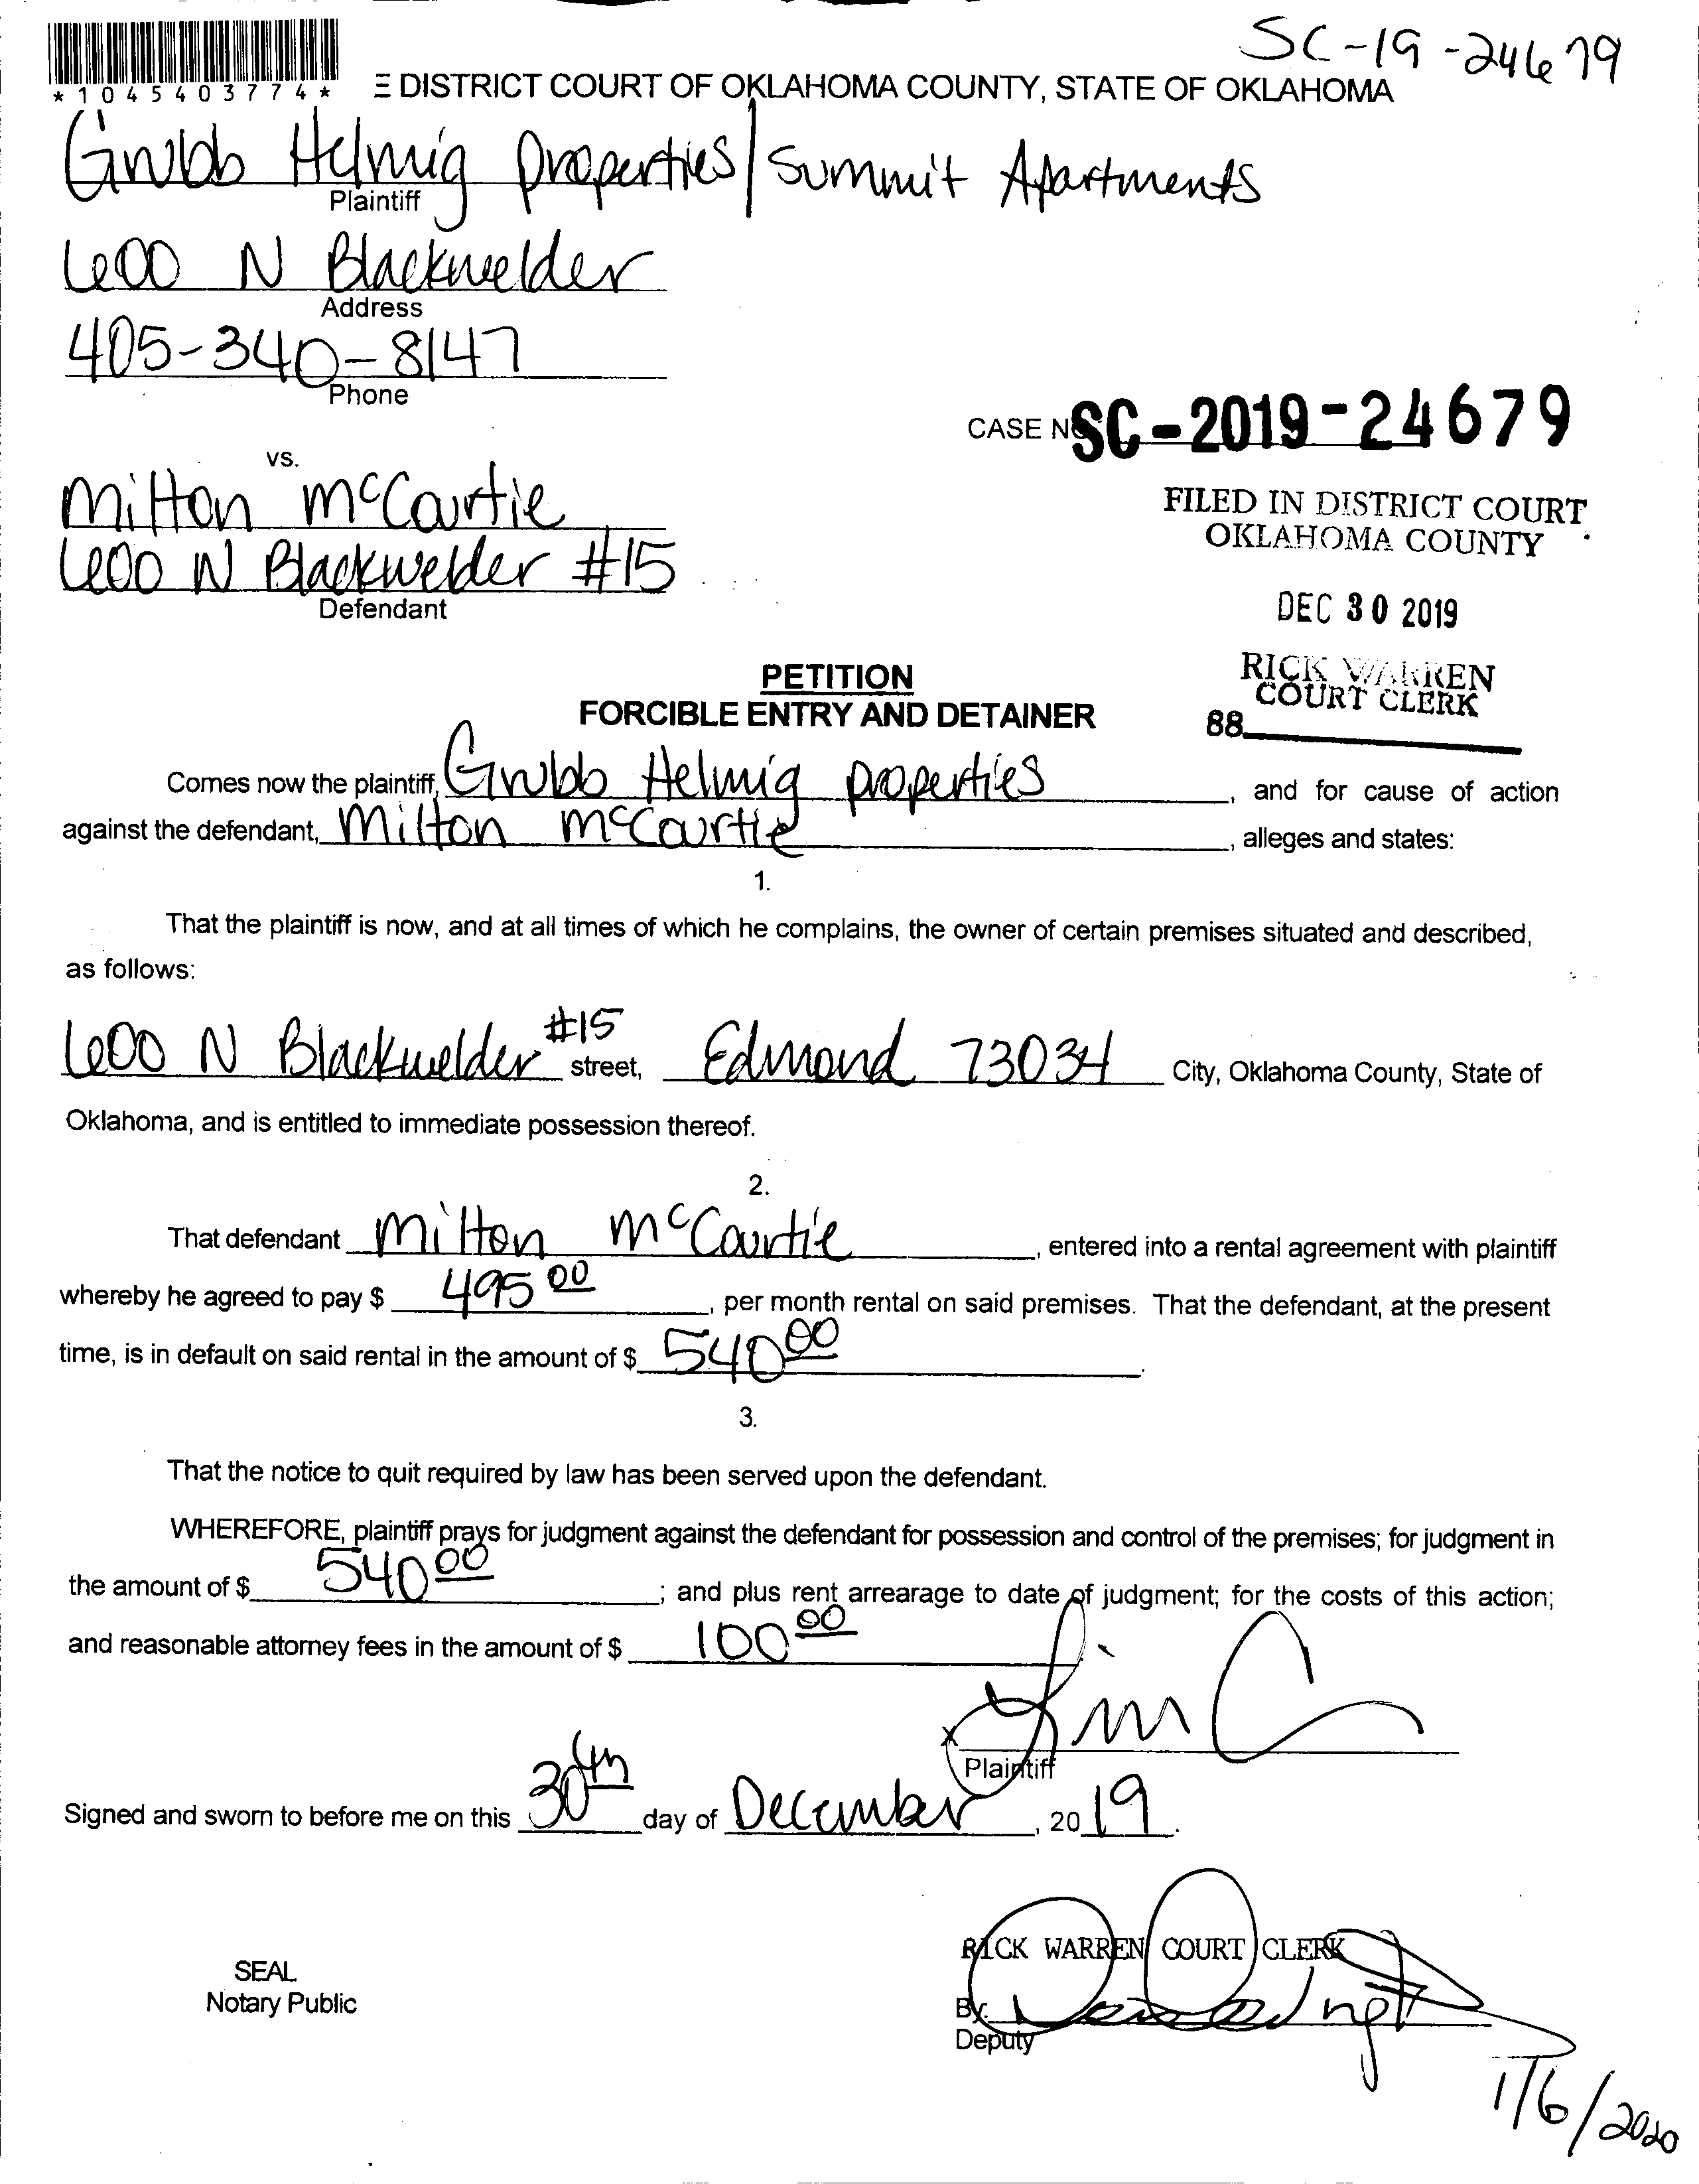 SC-19-24679
*1045403774*
E DISTRICT COURT OF OKLAHOMA COUNTY, STATE OF OKLAHOMA
Grubb Helmig Properties/Summit Apartments
Plaintiff
600 N Blackwelder
Address
405-340-8147
Phone
CASE NO SC-2019-24679
vs.
Milton McCourtie
600 N Blackwelder #15
Defendant
FILED IN DISTRICT COURT
OKLAHOMA COUNTY
DEC 30 2019
RICK WARREN
COURT CLERK
88
PETITION
FORCIBLE ENTRY AND DETAINER
Comes now the plaintiff, Grubb Helmig properties, and for cause of action
against the defendant, Milton McCourtie, alleges and states:
1.
That the plaintiff is now, and at all times of which he complains, the owner of certain premises situated and described,
as follows:
600 N Blackwelder #15 street, Edmond 73034 City, Oklahoma County, State of
Oklahoma, and is entitled to immediate possession thereof.
2.
That defendant Milton McCourtie, entered into a rental agreement with plaintiff
whereby he agreed to pay $ 495 00, per month rental on said premises. That the defendant, at the present
time, is in default on said rental in the amount of $ 540 00.
3.
That the notice to quit required by law has been served upon the defendant.
WHEREFORE, plaintiff prays for judgment against the defendant for possession and control of the premises; for judgment in
the amount of $ 540 00; and plus rent arrearage to date of judgment; for the costs of this action;
and reasonable attorney fees in the amount of $ 100 00
X
Plaintiff
Signed and sworn to before me on this 30th day of December, 2019.
RICK WARREN COURT CLERK
SEAL
Notary Public
By:
Deputy
1/6/2020